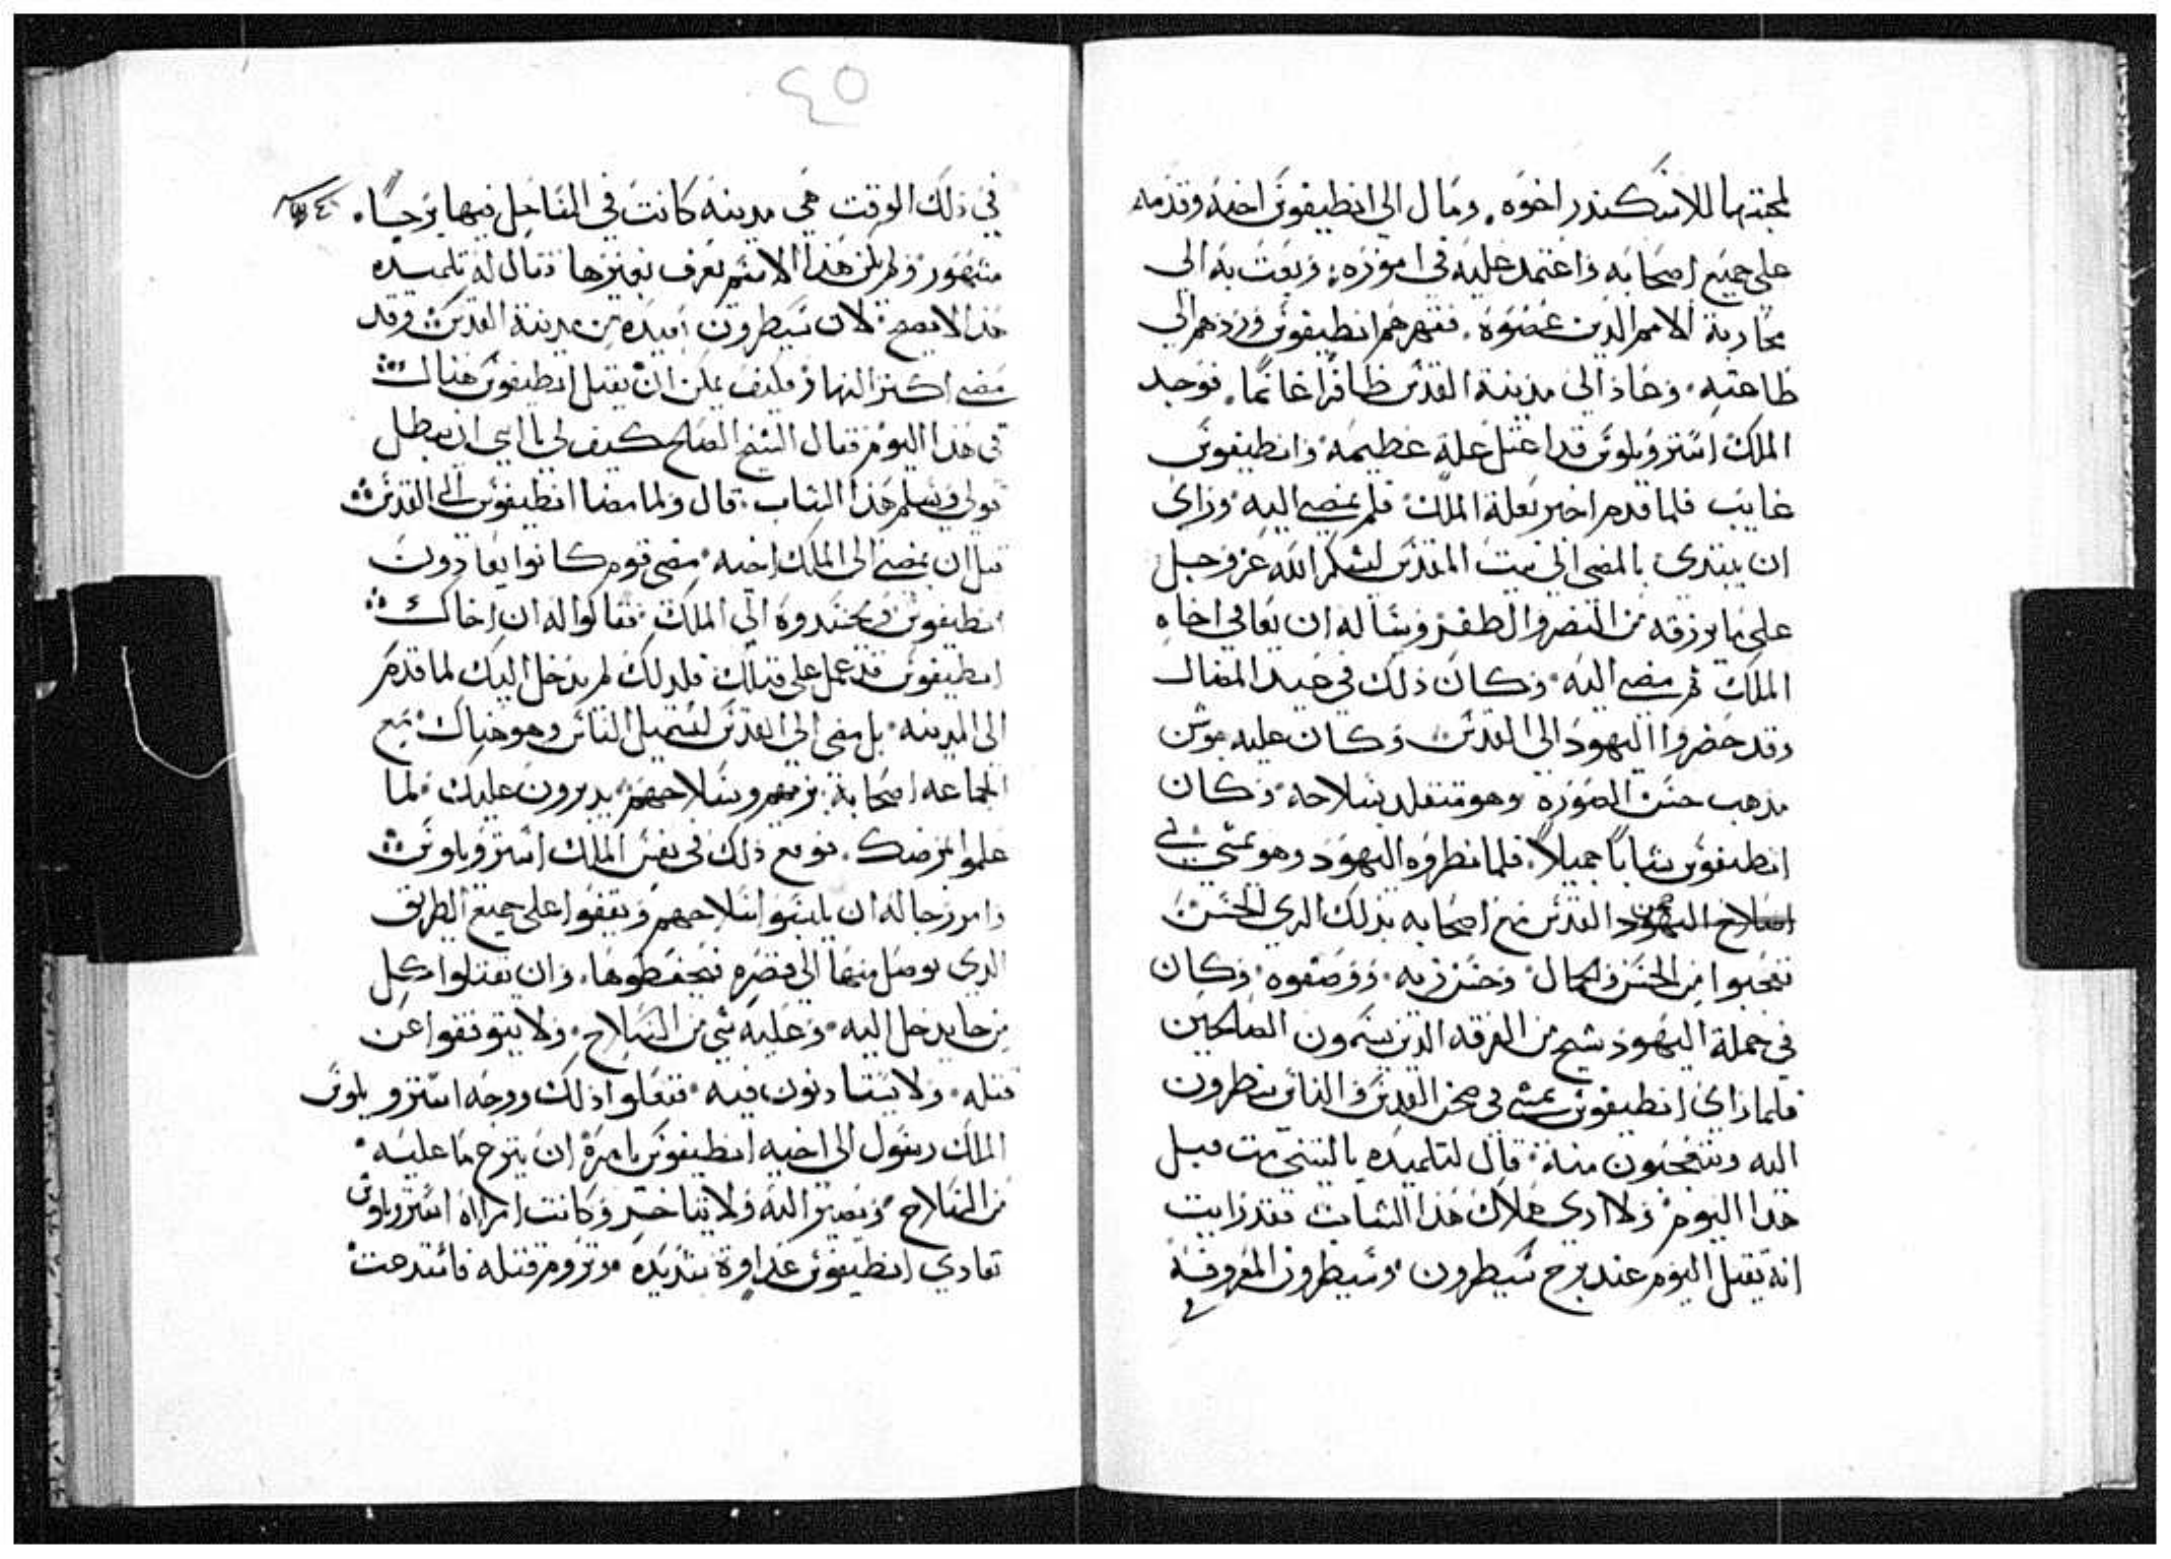 لمحبتها للاسكندر اخوه. ومال الى انطيغونس اخيه وقدمه
على جميع اصحابه واعتمد عليه في اموره. وبعت به الى
محاربة الامم الدين عصوه. فقهرهم انطيغونس وردهم الى
طاعته. وعاد الى مدينة القدس ظافرًا غانمًا. فوجد
الملك استروبلوس قد اعتل علة عظيمه وانطيغونس
غايب فلما قدم اخبر بعلة الملك فلم يمضي اليه وراى
ان يبتدى بالمضى الى بيت المقدس ليشكر الله عز وجل
على ما يرزقه من النصر والظفر ويساله ان يعافي اخاه
الملك ثم يمضي اليه وكان ذلك في عيد المضال
وقد حضروا اليهود الى القدس وكان عليه جوشن
مذهب حسن الصوره وهو متقلد بسلاحه وكان
انطيغونس شابًا جميلاً. فلما نظروه اليهود وهو يمشي في
صحن القدس مع اصحابه بذلك الزي الحسن
تعجبوا من الحسن والجمال وحسن زيه ووصفوه وكان
في جملة اليهود شيخ من الفرقه الذين يسمون الصالحين
فلما راى انطيغونس يمشي في صحن القدس والناس ينظرون
اليه ويتعجبون منه قال لتلميده يا ليتني مت قبل
هدا اليوم ولا ارى هلاك هدا الشاب فقد رايت
انه يقتل اليوم عند برج شيطرون وشيطرون المعروفه
في
٤٥
في ذلك الوقت هي مدينه كانت في الساحل فيها برجًا.
مشهور ولم يكن هدا الاسم يعرف بغيرها فقال له تلميده
هدا لا يصح لان شيطرون بعيده من مدينة القدس وقد
مضي اكتر النهار فكيف يمكن ان يقتل انطيغونس هناك
في هدا اليوم فقال الشيخ الصالح كيف لي يا ابني ان يبطل
قولي ويسلم هدا الشاب. قال ولما مضا انطيغونس الى القدس
قبل ان يمضي الى الملك اخيه مضى قوم كانوا يعادون
انطيغونس ويحسدوه الى الملك فقالوا له ان اخاك
انطيغونس قد عمل على قتلك فلدلك لم يدخل اليك لما قدم
الى المدينه بل مضى الى القدس ليستميل الناس وهو هناك مع
الجماعه اصحابه بزيهم وسلاحهم يدبرون عليك لما
علموا بمرضك. فوقع ذلك في نفس الملك استروبلوس
وامر رجاله ان يلبسوا سلاحهم ويقفوا على جميع الطريق
الدي يوصل منها الى قصره فيحفظوها. وان يقتلوا كل
من جا يدخل اليه وعليه شي من السلاح ولا يتوقفوا عن
قتله ولا يستادنون فيه ففعلوا ذلك ووجه استروبلوس
الملك رسول الى اخيه انطيغونس يامره ان ينزع ما عليه
من السلاح ويصير اليه ولا يتاخر وكانت امراة استروبلوس
تعادي انطيغونس عداوة شديده وتروم قتله فاستدعت